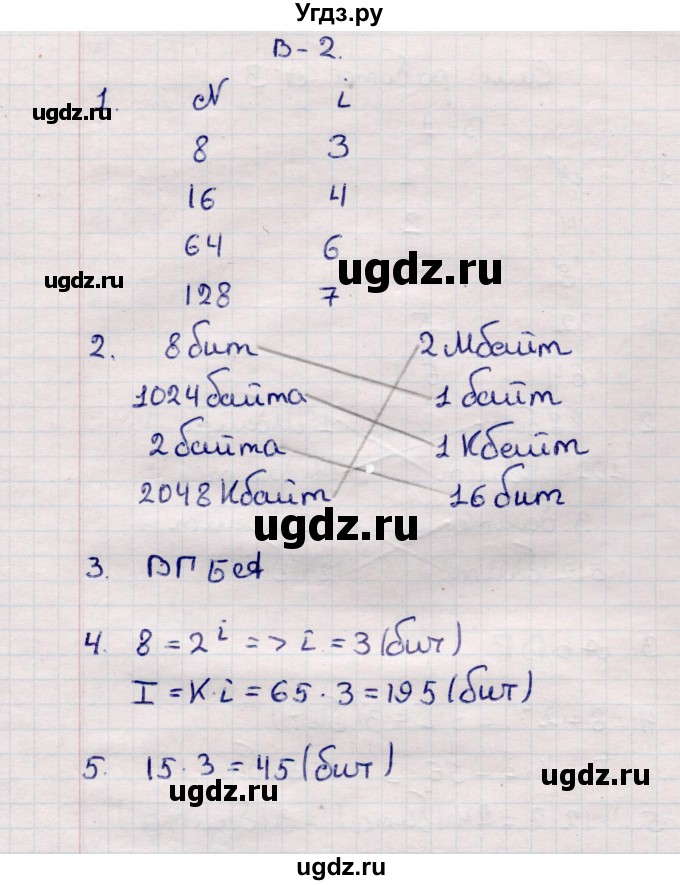 Угдз.ру
В - 2.
1. N i
ugdz.ru
8 3
16 4
64 6
ugdz.ru
ugdz.ru
128 7
2. 8 бит 2 Мбайт
1024 байта 1 байт
2 байта 1 Кбайт
2048 Кбайт 16 бит
ugdz.ru
3. ВПБА
4. 8 = 2^i => i = 3 (бит)
I = K·i = 65 · 3 = 195 (бит)
5. 15 · 3 = 45 (бит)
ugdz.ru
ugdz.ru
ugdz.ru